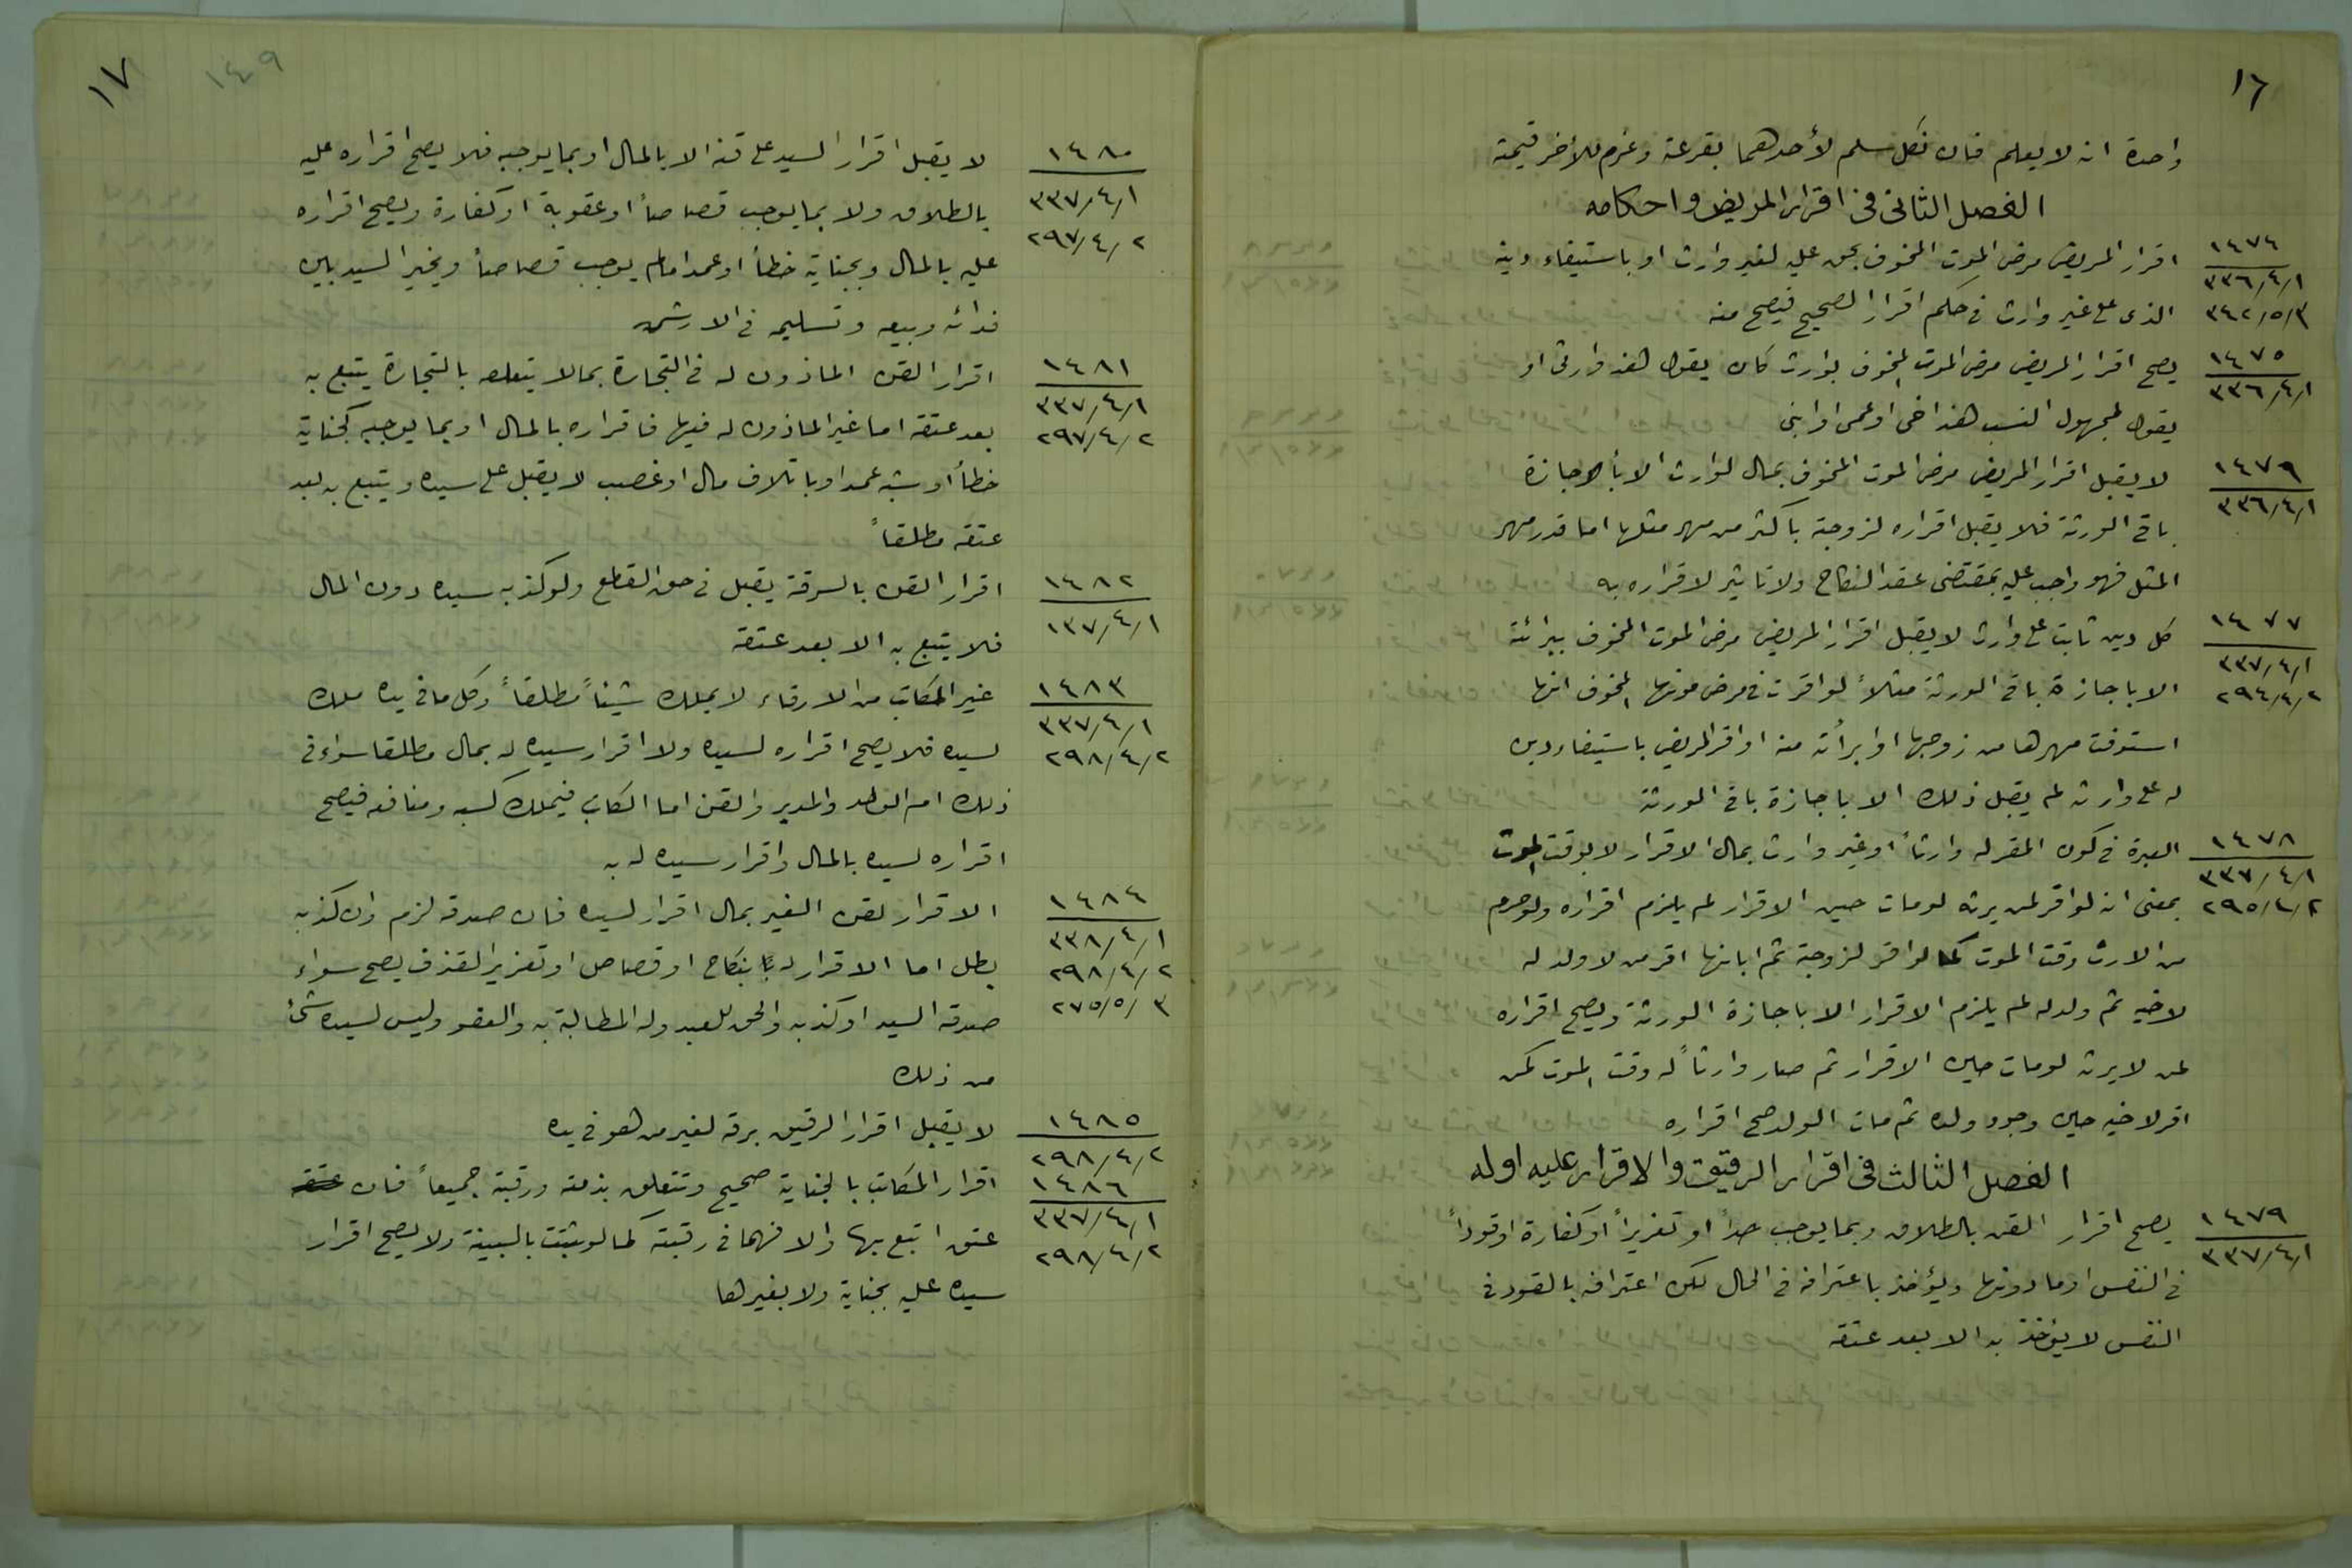 ١٦
واحدة انه لا يعلم فان نكل سلم لأحدهما بقرعة وغرم للأخر قيمته
الفصل الثانى فى اقرار المريض واحكامه
١٤٧٤
٣٣٦/٤/١
٣٤٢/٥/٣
اقرار المريض مرض الموت المخوف بحق عليه لغير وارث او باستيفاء دينه
الذى على غير وارث فى حكم اقرار الصحيح فيصح منه
١٤٧٥
٣٣٦/٤/١
يصح اقرار المريض مرض الموت المخوف بوارث كان يقول هذا وارثى او
يقول لمجهول النسب هذا اخى او عمى او ابنى
١٤٧٩
٣٣٦/٤/١
لا يقبل اقرار المريض مرض الموت المخوف بمال لوارث الا بأجازة
باقى الورثة فلا يقبل اقراره لزوجته باكثر من مهر مثلها اما قدر مهر
المثل فهو واجب عليه بمقتضى عقد النكاح ولا تاثير لاقراره به
١٤٧٧
٣٣٧/٤/١
٢٩٤/٤/٢
كل دين ثابت على وارث لا يقبل اقرار المريض مرض الموت المخوف ببرائته
الا باجازة باقى الورثة مثلاً لو اقرت فى مرض موتها المخوف انها
استوفت مهرها من زوجها او ابرأته منه او اقر المريض باستيفاء دين
له على وارثه لم يقبل ذلك الا باجازة باقى الورثة
١٤٧٨
٣٣٧/٤/١
٢٩٥/٤/٢
العبرة فى كون المقر له وارثاً او غير وارث بحال الاقرار لا بوقت الموت
بمعنى انه لو اقر لمن يرثه لو مات حين الاقرار لم يلزم اقراره ولو حرم
من الارث وقت الموت كما لو اقر لزوجته ثم ابانها اقر من لا ولد له
لاخيه ثم ولد له لم يلزم الاقرار الا باجازة الورثة ويصح اقراره
لمن لا يرثه لو مات حين الاقرار ثم صار وارثاً له وقت الموت كمن
اقر لاخيه حين وجود ولده ثم مات الولد صح اقراره
الفصل الثالث فى اقرار الرقيق والاقرار عليه اوله
١٤٧٩
٣٣٧/٤/١
يصح اقرار القن بالطلاق وبما يوجب حداً او تعزيراً او كفارة او قوداً
فى النفس او ما دونها ويؤخذ باعترافه فى الحال لكن اعترافه بالقود فى
النفس لا يؤخذ به الا بعد عتقه
١٧
١٤٩
١٤٨٠
٣٣٧/٤/١
٢٩٧/٤/٢
لا يقبل اقرار السيد على قنه الا بالمال او بما يوجبه فلا يصح اقراره عليه
بالطلاق ولا بما يوجب قصاصاً او عقوبة او كفارة ويصح اقراره
عليه بالمال وبجناية خطأ او عمدا مالم يوجب قصاصاً ويخير السيد بين
فدائه وبيعه وتسليمه فى الارش
١٤٨١
٣٣٧/٤/١
٢٩٧/٤/٢
اقرار القن الماذون له فى التجارة بما لا يتعلق بالتجارة يتبع به
بعد عتقه اما غير الماذون له فيها فاقراره بالمال او بما يوجبه كجناية
خطأ او شبه عمد او باتلاف مال او غصب لا يقبل على سيده ويتبع به بعد
عتقه مطلقاً
١٤٨٢
١٣٧/٤/١
اقرار القن بالسرقة يقبل فى حق القطع ولو كذبه سيده دون المال
فلا يتبع به الا بعد عتقه
١٤٨٣
٣٣٧/٤/١
٢٩٨/٤/٢
غير المكاتب من الارقاء لا يملك شيئاً مطلقاً وكل ما فى يده ملك
لسيده فلا يصح اقراره لسيده ولا اقرار سيده له بمال مطلقا سواء فى
ذلك ام الولد والمدبر والقن اما المكاتب فيملك كسبه ومنافعه فيصح
اقراره لسيده بالمال واقرار سيده له به
١٤٨٤
٣٣٨/٤/١
٢٩٨/٤/٢
٢٧٥/٥/٣
الاقرار لقن الغير بمال اقرار لسيده فان صدقه لزم وان كذبه
بطل اما الاقرار له بنكاح او قصاص او تعزير القذف يصح سواء
صدقه السيد او كذبه والحق للعبد وله المطالبة به والعفو وليس لسيده شئ
من ذلك
١٤٨٥
٢٩٨/٤/٢
لا يقبل اقرار الرقيق برقه لغير من هو فى يده
١٤٨٦
٣٣٧/٤/١
٢٩٨/٤/٢
اقرار المكاتب بالجناية صحيح وتتعلق بذمته ورقبته جميعاً فان عتقه
عتق اتبع بها والا فهما فى رقبته كما لو ثبتت بالبينة ولا يصح اقرار
سيده عليه بجناية ولا بغيرها